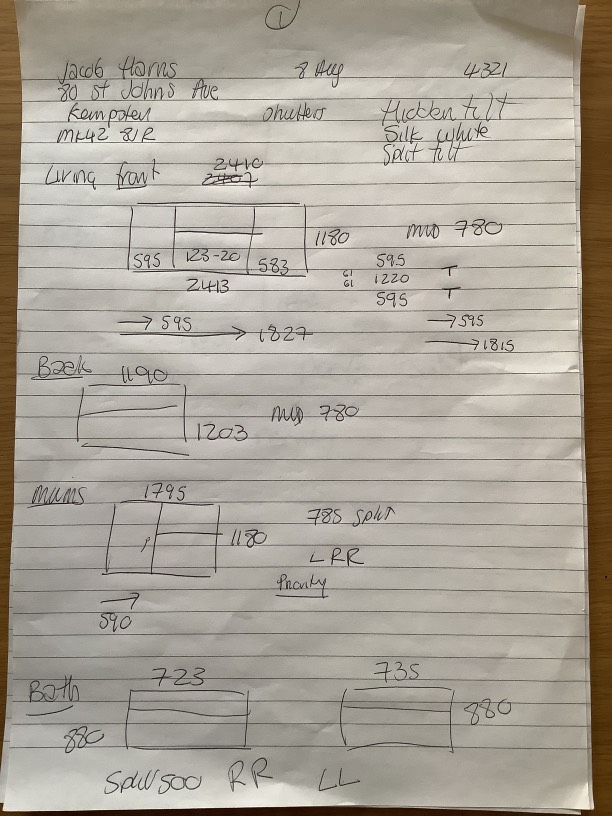 1
Jacob Harris 8 Aug 4321
80 St Johns Ave
Kempston Shutters Hidden tilt
MK42 8JR Silk white
Split tilt
Living front 2410
2407
1180 mid 780
595 123-20 583
2413
595
61 1220 T
61 595 T
→ 595
→ 1827
→ 595
→ 1815
Back 1190
1203 mid 780
Mums 1795
785 split
1180
LRR
Priority
→
590
Bath 723 735
880 880
Split 500 RR LL